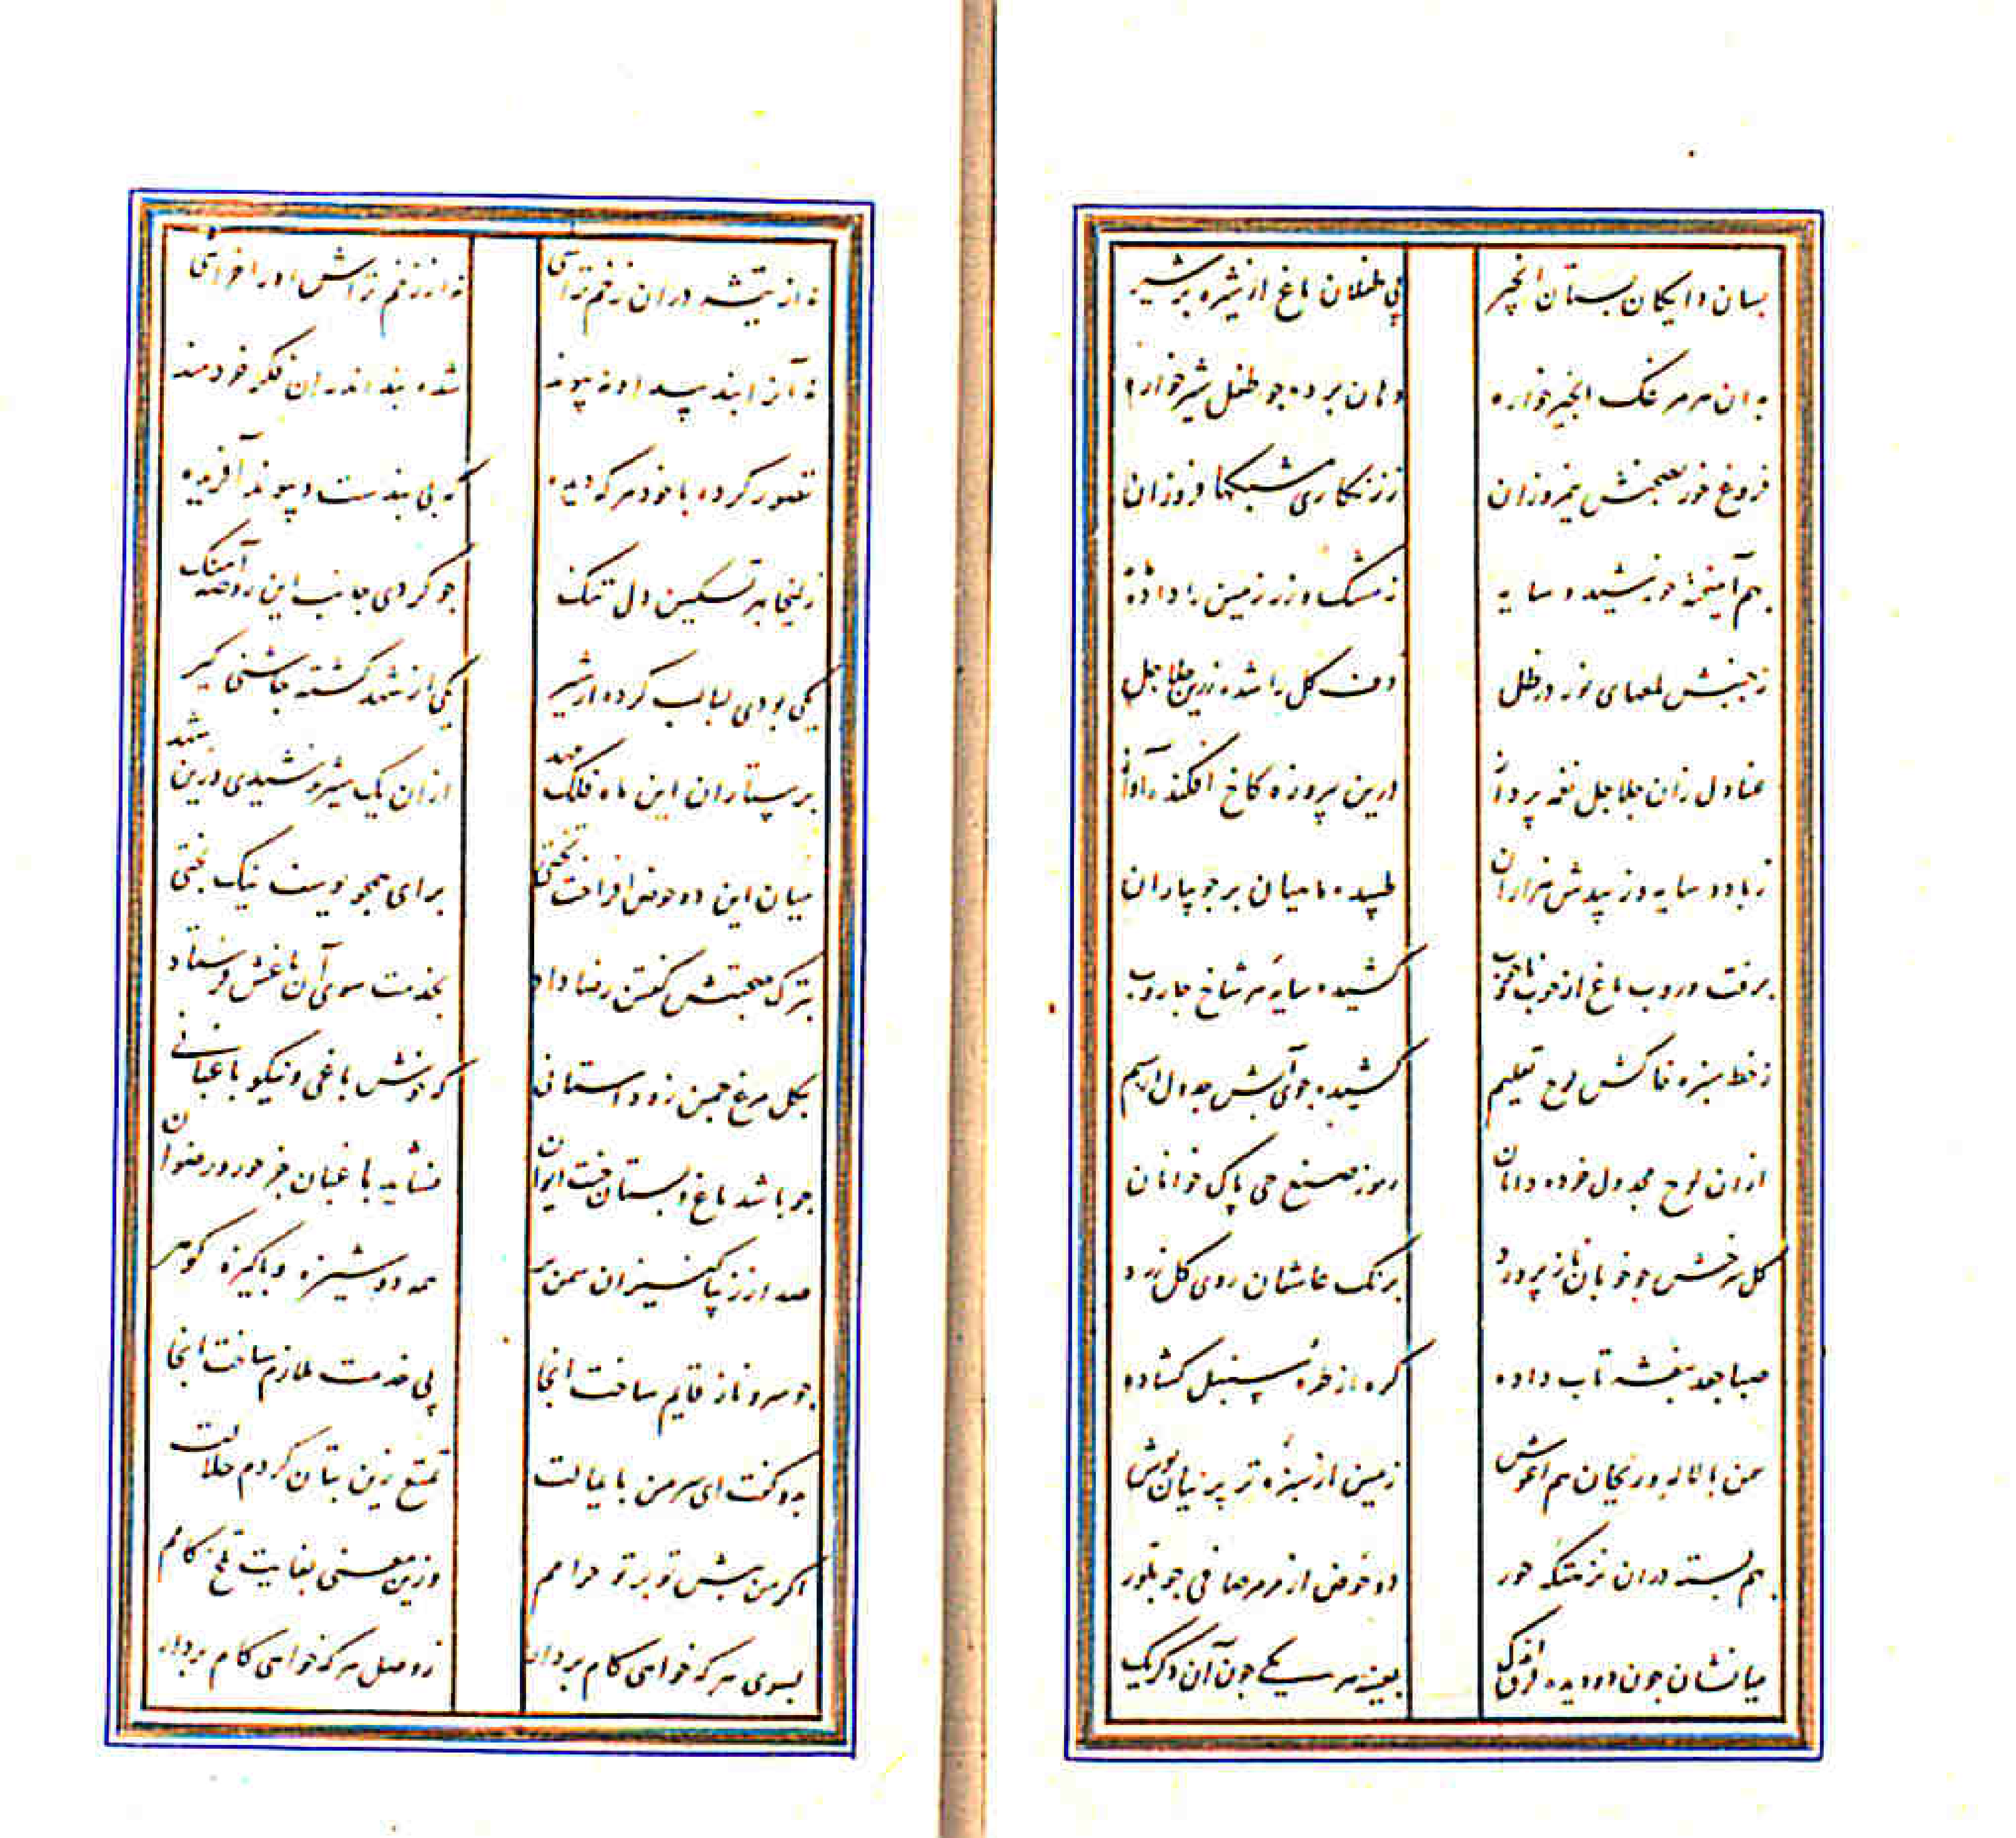 بسان دایکان بستان انجیر
پی طفلان باغ از شیره پرشیر
بران هر مرغک انجیر خواره
دهان برده جو طفل شیرخواره
فروغ خور بصحنش نیمروزان
ز زنکاری مشبکها فروزان
بهم آمیخته خورشید و سایه
ز مشک و زر زمین را داده
ز جنبش لمعهای نور در ظل
دف کل را شده زرین جلاجل
عنادل زان جلاجل نغمه پرداز
درین پیروزه کاخ افکنده آواز
ز باد و سایه در بیدش هزاران
طپیده ماهیان بر جویباران
برفت و روب باغ از خوب ناخوب
کشیده سایه هر شاخ جاروب
ز خط سبزه خاکش لوح تعلیم
کشیده جوی آبش جدول از سیم
ازان لوح مجدول خرده دانان
رموز صنع حی پاک خوانان
کل سرخش جو خوبان نازپرورد
برنک عاشقان روی کل زرد
صبا جعد بنفشه تاب داده
کره از طره سنبل کشاده
سمن با لاله و ریحان هم آغوش
زمین از سبزه تر پرنیان پوش
بهم بسته دران نزهتکه حور
دو حوض از مرمر صافی جو بلور
میانشان جون دو دیده فرق
بعینه هر یکی جون آن دکر یک
نه از تیشه دران زخم تراشی
نه از زخم تراش او را خراشی
نه آنرا بند پیدا و نه پیوند
شده بند اندران فکر خردمند
تصور کرده با خود هر که دیده
که بی بندست و پیوند آفریده
زلیخا بهر تسکین دل تنک
جو کردی جانب این روضه آهنک
یکی بودی لبالب کرده از شیر
یکی از شهد کشته جاشنی کیر
پرستاران این ماه فلک مهد
ازان یک شیر نوشیدی وزین شهد
میان این دو حوض افراخت تختی
برای همجو یوسف نیک بختی
بترک صحبتش کفتن رضا داد
بخدمت سوی آن باغش فرستاد
بکل مرغ جمن زد داستانی
که خوش باغی و نیکو باغبانی
جو باشد باغ و بستان جنت ایوان
نشاید باغبان جز حور و رضوان
صد از زیبا کنیزان سمن بر
همه دوشیزه و پاکیزه کوهر
جو سرو ناز قایم ساخت انجا
پی خدمت ملازم ساخت انجا
بدو کفت ای سر من پایمالت
تمتع زین بتان کردم حلالت
اکر من پیش تو بر تو حرامم
وزین معنی بغایت تلخ کامم
بسوی هر که خواهی کام بردار
ز وصل هر که خواهی کام بردار